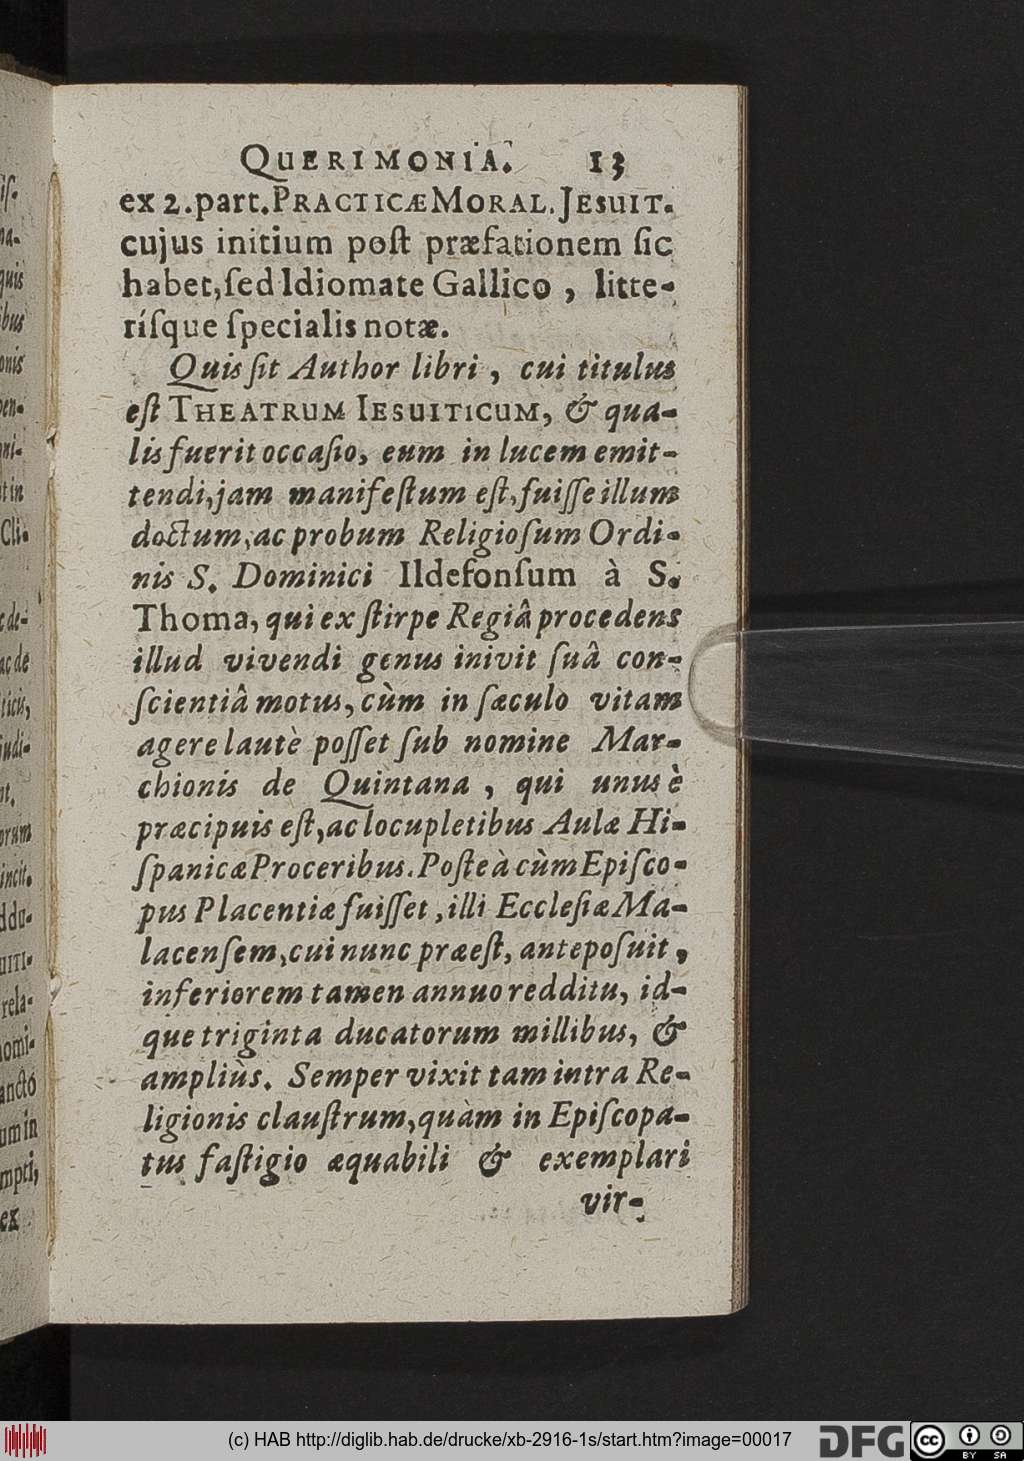 QUERIMONIA. 13
ex 2. part. PRACTICÆ MORAL. JESUIT.
cujus initium poſt præfationem ſic
habet, ſed Idiomate Gallico, litte-
riſque ſpecialis notæ.
Quis ſit Author libri, cui titulus
eſt THEATRUM IESUITICUM, & qua-
lis fuerit occaſio, eum in lucem emit-
tendi, jam manifeſtum eſt, fuiſſe illum
doctum, ac probum Religioſum Ordi-
nis S. Dominici Ildefonſum à S.
Thoma, qui ex ſtirpe Regiâ procedens
illud vivendi genus inivit ſuâ con-
ſcientiâ motus, cùm in ſæculo vitam
agere lautè poſſet ſub nomine Mar-
chionis de Quintana, qui unus è
præcipuis eſt, ac locupletibus Aulæ Hi-
ſpanicæ Proceribus. Poſteà cùm Epiſco-
pus Placentiæ fuiſſet, illi Eccleſiæ Ma-
lacenſem, cui nunc præeſt, antepoſuit,
inferiorem tamen annuo redditu, id-
que triginta ducatorum millibus, &
ampliùs. Semper vixit tam intra Re-
ligionis clauſtrum, quàm in Epiſcopa-
tus faſtigio æquabili & exemplari
vir-
iſ-
na-
quis
ibus
onis
pen-
ni-
t in
Cli-
ac de
ticis,
judi-
nt.
orum
incit.
ddu-
UITI-
rela-
omi-
ancto
um in
mpti,
ex
(c) HAB http://diglib.hab.de/drucke/xb-2916-1s/start.htm?image=00017
DFG
cc BY SA